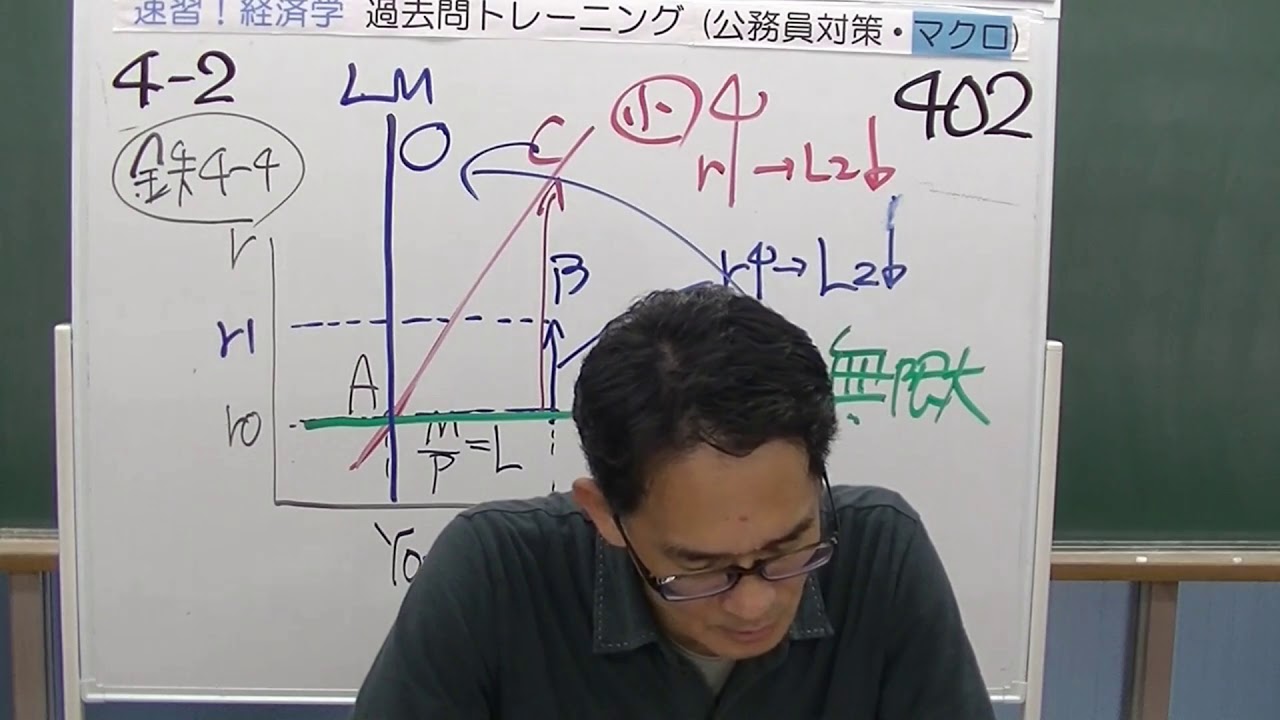 速習！経済学 過去問トレーニング (公務員対策・マクロ)
4-2
LM
小
402
鉄4-4
O
C
r↑→L2↓
r
B
r↑→L2↓
r1
A
無限大
r0
M/P=L
Y0